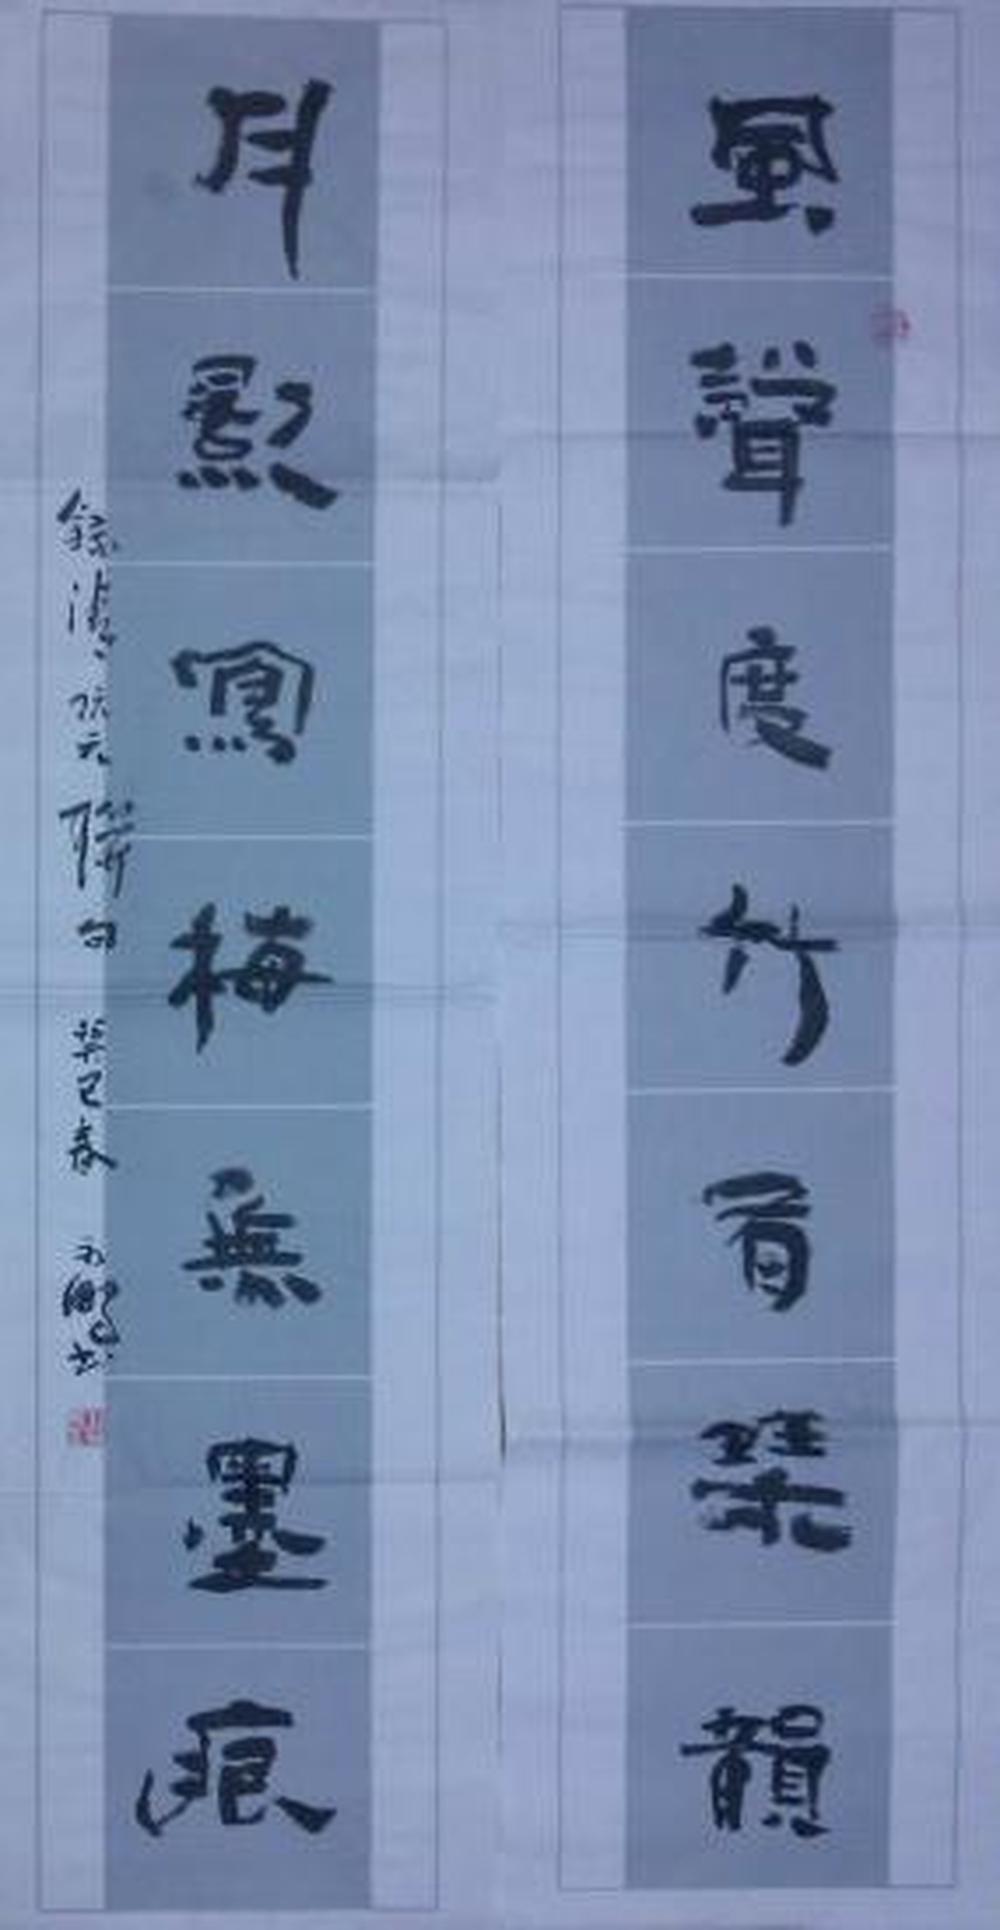 風聲度竹有琴韻
月影寫梅無墨痕
錄清阮元聯句 癸巳春